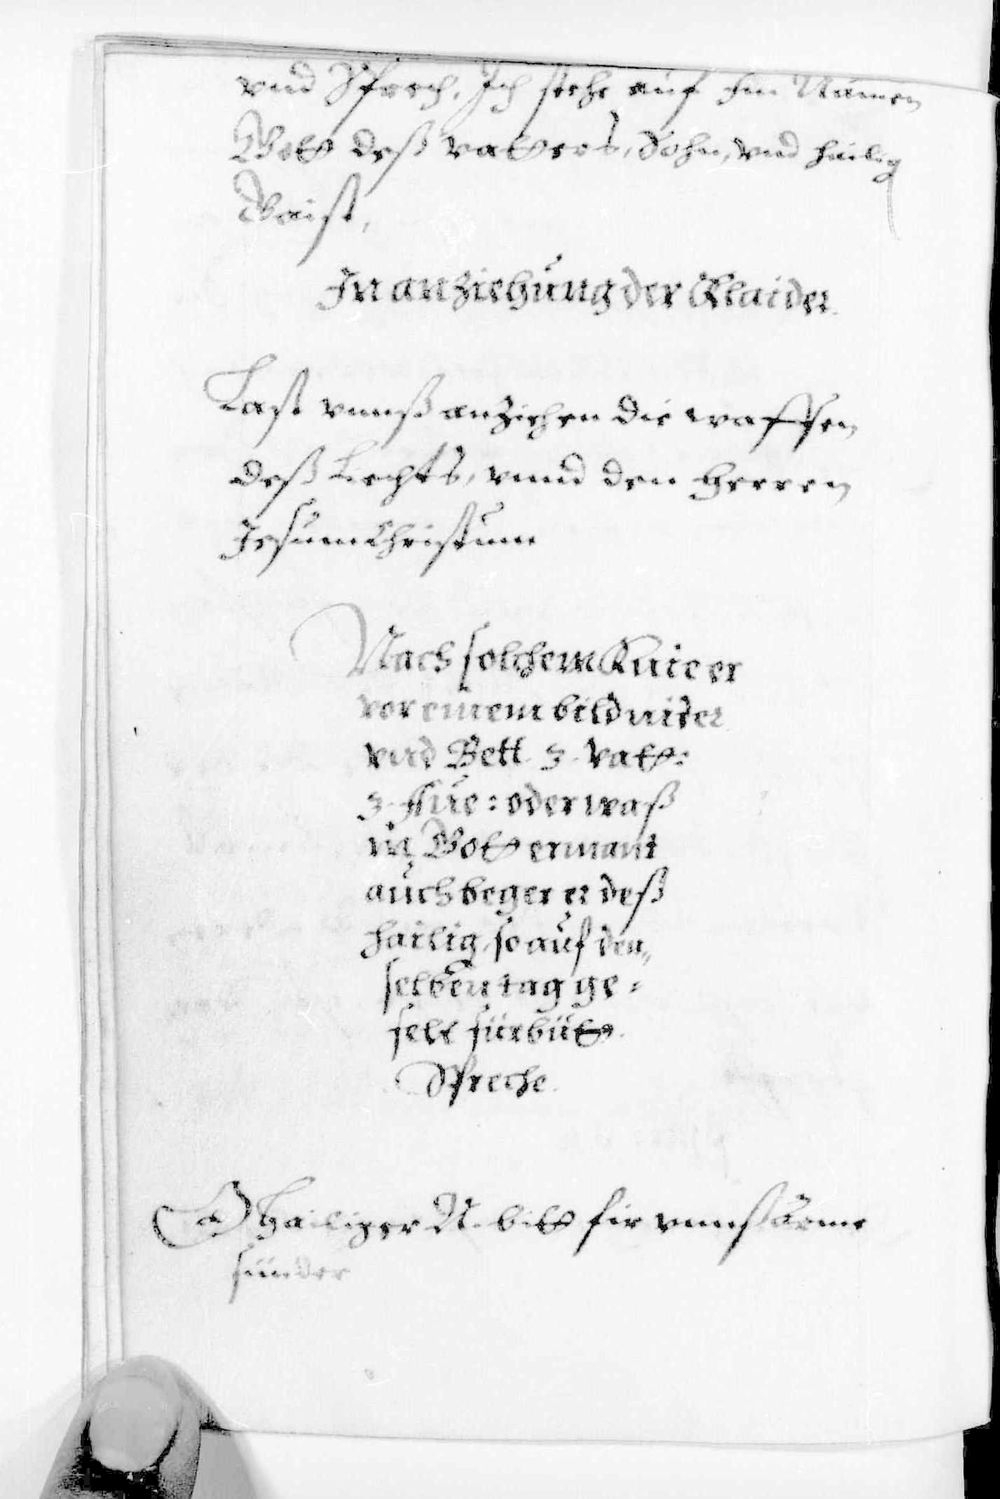 vnd Sprech, Ich stehe auf Im Namen
Gott deß vatters, Sohn, vnd hailig
Gaist,
In anziehung der Klaider
Last vnnß anziehen die waffen
deß Liechts, vnnd den Herren
Jesum Christum
Nach solchem Knie er
vor einem bild nider
vnd Bett. 3. vatt:
3. Aue: oder waß
in Gott ermant
auch beger er deß
hailig, so auf den„
selben tag ge=
felt fürbitt.
Spreche
O Hailiger N. bitt fir vnnß arme
sünder